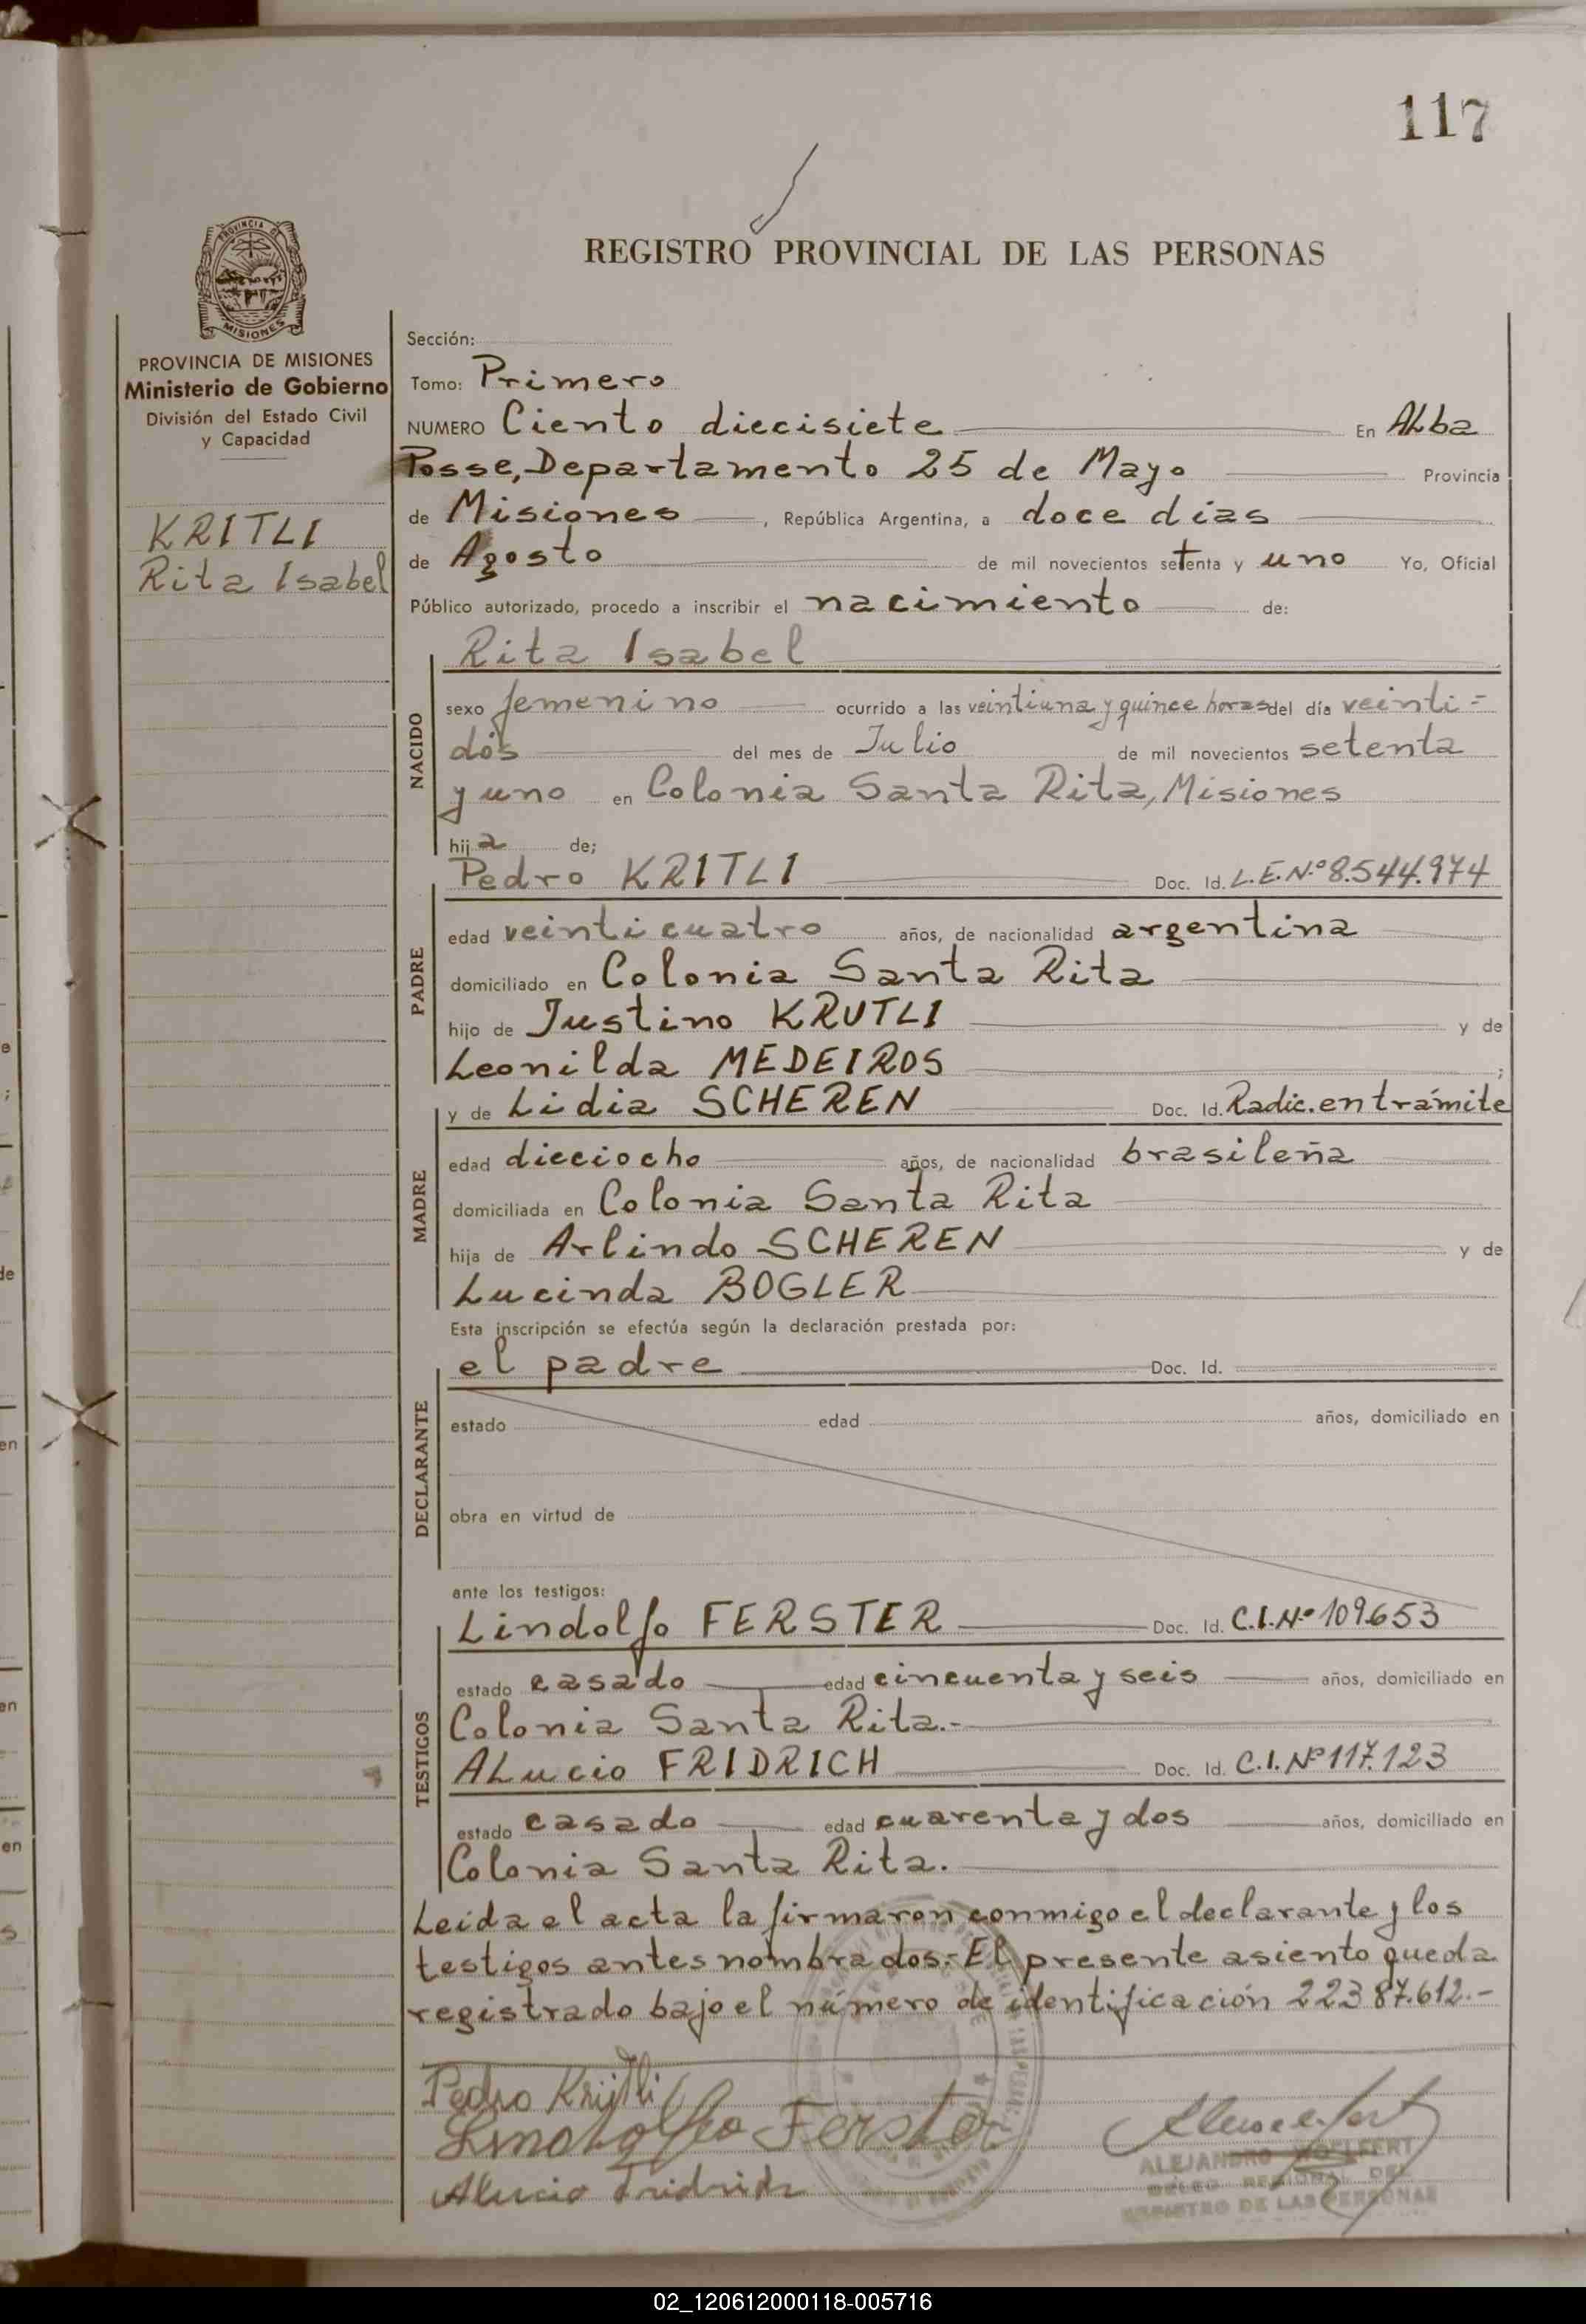 117
REGISTRO PROVINCIAL DE LAS PERSONAS
PROVINCIA DE
MISIONES
PROVINCIA DE MISIONES
Ministerio de Gobierno
División del Estado Civil
y Capacidad
KRITLI
Rita Isabel
Sección:
Tomo: Primero
NUMERO Ciento diecisiete En Alba
Posse, Departamento 25 de Mayo Provincia
de Misiones, República Argentina, a doce días
de Agosto de mil novecientos setenta y uno Yo, Oficial
Público autorizado, procedo a inscribir el nacimiento de:
Rita Isabel
NACIDO
sexo femenino ocurrido a las veintiuna y quince horas del día veinti=
dós del mes de Julio de mil novecientos setenta
y uno en Colonia Santa Rita, Misiones
hija de;
Pedro KRITLI Doc. Id. L.E.Nº 8.544.974
PADRE
edad veinticuatro años, de nacionalidad argentina
domiciliado en Colonia Santa Rita
hijo de Justino KRUTLI y de
Leonilda MEDEIROS ;
y de Lidia SCHEREN Doc. Id. Radic. en trámite
MADRE
edad dieciocho años, de nacionalidad brasileña
domiciliada en Colonia Santa Rita
hija de Arlindo SCHEREN y de
Lucinda BOGLER
Esta inscripción se efectúa según la declaración prestada por:
el padre Doc. Id.
DECLARANTE
estado edad años, domiciliado en
obra en virtud de
ante los testigos:
Lindolfo FERSTER Doc. Id. C.I.Nº 109.653
TESTIGOS
estado casado edad cincuenta y seis años, domiciliado en
Colonia Santa Rita.-
ALucio FRIDRICH Doc. Id. C.I. Nº 117.123
estado casado edad cuarenta y dos años, domiciliado en
Colonia Santa Rita.
Leída el acta la firmaron conmigo el declarante y los
testigos antes nombrados.- El presente asiento queda
registrado bajo el número de identificación 22387.612.-
Pedro Krütli
Lindolfo Ferster
Alucio Fridrich
ALEJANDRO WOELFERT
DELEG. REGIONAL DEL
REGISTRO DE LAS PERSONAS
02_120612000118-005716